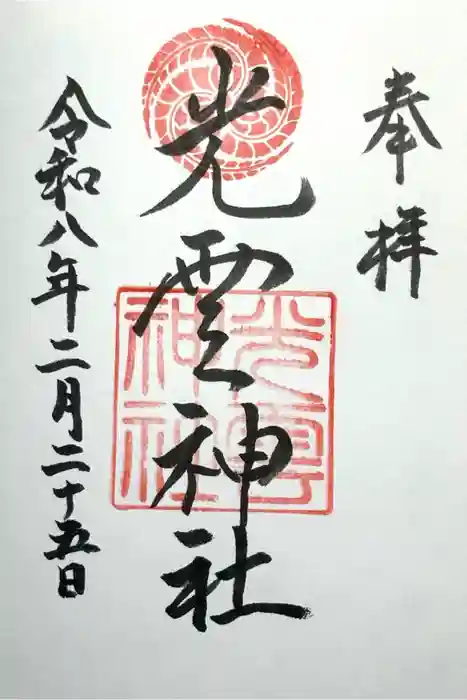 奉拝
光雲神社
光雲
神社
令和八年二月二十五日